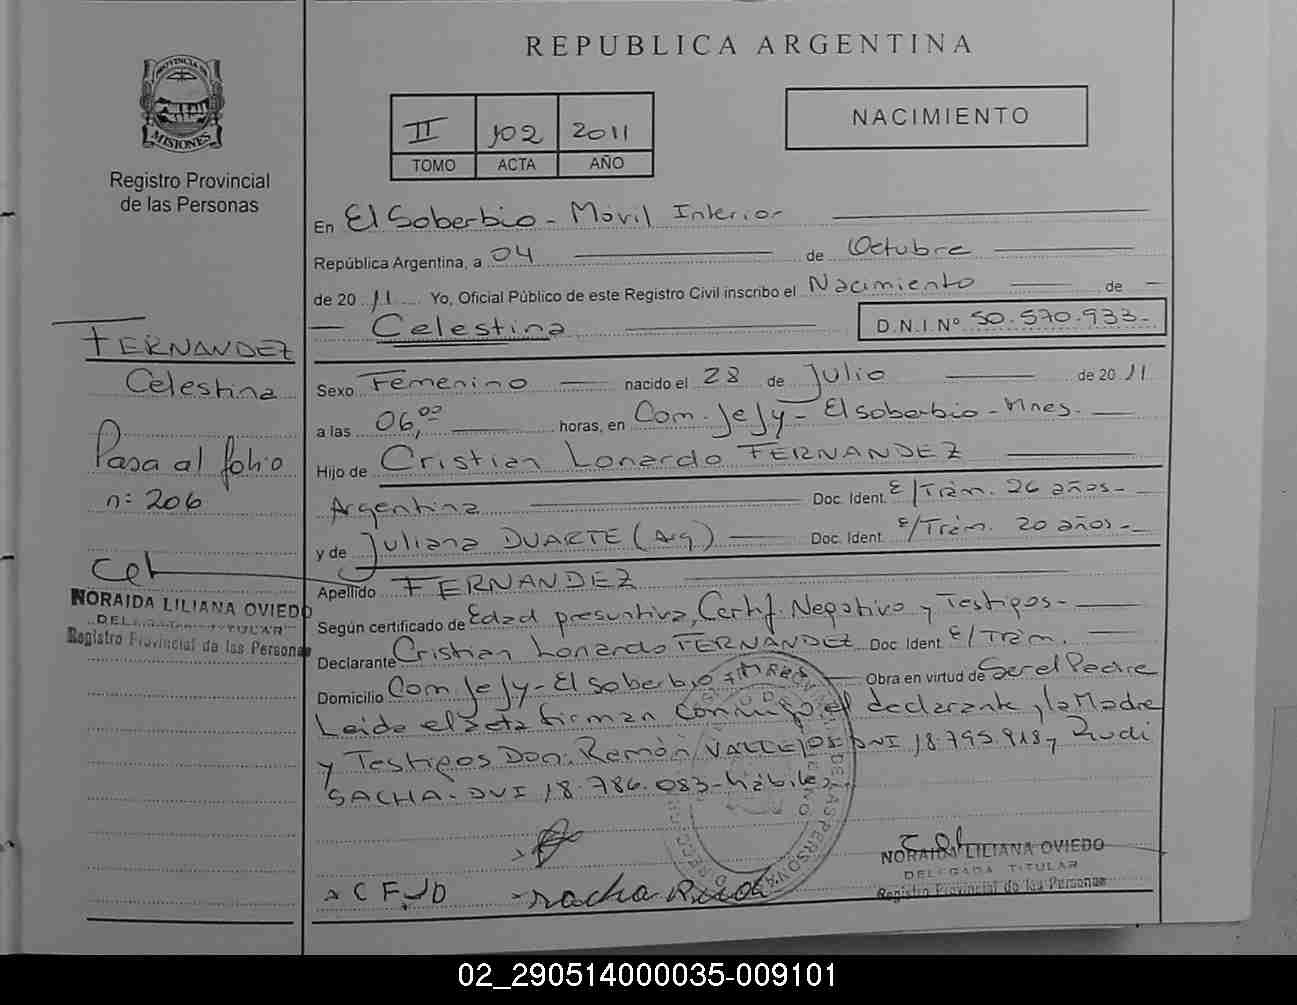 REPUBLICA ARGENTINA
PROVINCIA DE
MISIONES
Registro Provincial
de las Personas
II 102 2011
TOMO ACTA AÑO
NACIMIENTO
En El Soberbio - Móvil Interior
República Argentina, a 04 de Octubre
de 2011 Yo, Oficial Público de este Registro Civil inscribo el Nacimiento de
Celestina
D.N.I Nº 50.570.933-
FERNANDEZ
Celestina
Pasa al folio
n: 206
Sexo Femenino nacido el 28 de Julio de 2011
a las 06,00 horas, en Com. Jejy - El soberbio - Mnes.
Hijo de Cristian Lonardo FERNANDEZ
Argentina Doc. Ident. E/Trám. 26 años -
y de Juliana DUARTE (Arg) Doc. Ident. E/Trám. 20 años -
Apellido FERNANDEZ
Según certificado de Edad presuntiva, Certif. Negativo y Testigos -
Declarante Cristian Lonardo FERNANDEZ Doc. Ident E/Trám.
Domicilio Com. Jejy - El soberbio Obra en virtud de Ser el Padre
Leida el acta firman conmigo, el declarante, la Madre
y Testigos Don: Ramón VALLEJOS DNI 18.795.918, Rudi
SACHA - DNI 18.786.083 - hábiles
NORAIDA LILIANA OVIEDO
DELEGADA TITULAR
Registro Provincial de las Personas
C F JD
Sacha Rudi
NORAIDA LILIANA OVIEDO
DELEGADA TITULAR
Registro Provincial de las Personas
02_290514000035-009101